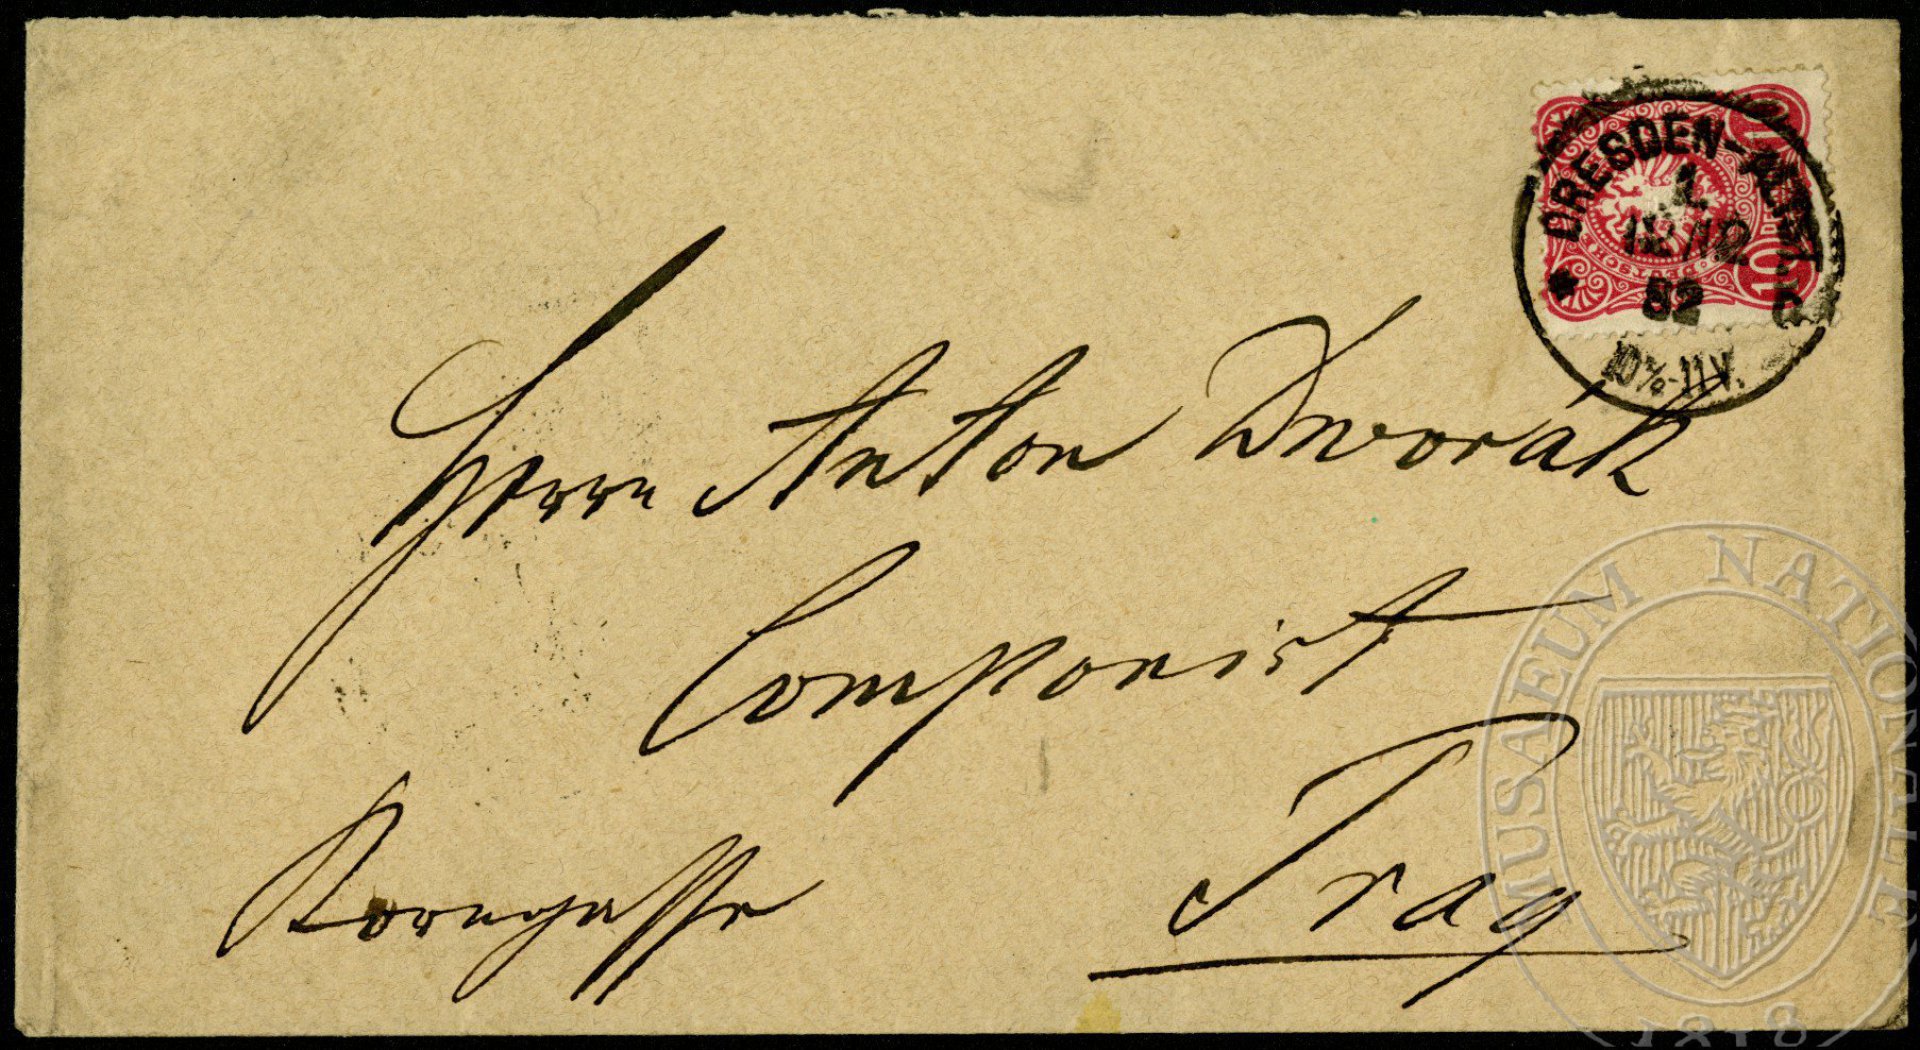 DRESDEN-ALTST.
1.
12
82
10½-11V.
10
10
Herrn Anton Dvorák
Componist
Korngasse
Prag
MUSAEUM NATIONALE
1818